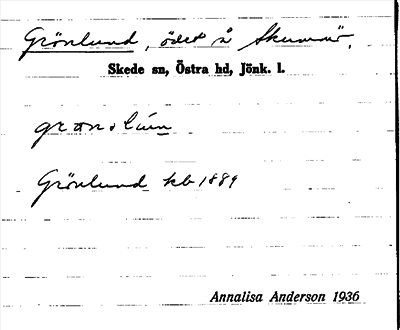 Grönlund, ödet å Skummär.
Skede sn, Östra hd, Jönk. l.
Grönlund kb 1889
Annalisa Anderson 1936